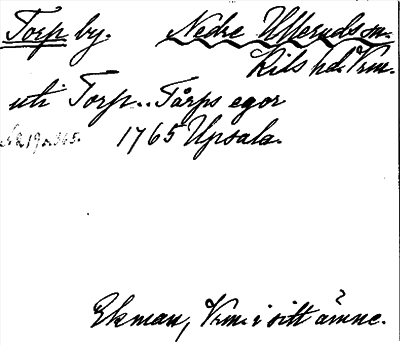 Torp by. Nedre Ulleruds sn.
Kils hd. Vrm.
uti Torp.. Tårps egor
1765 Upsala.
Ekman, Vrm. i sitt ämne.